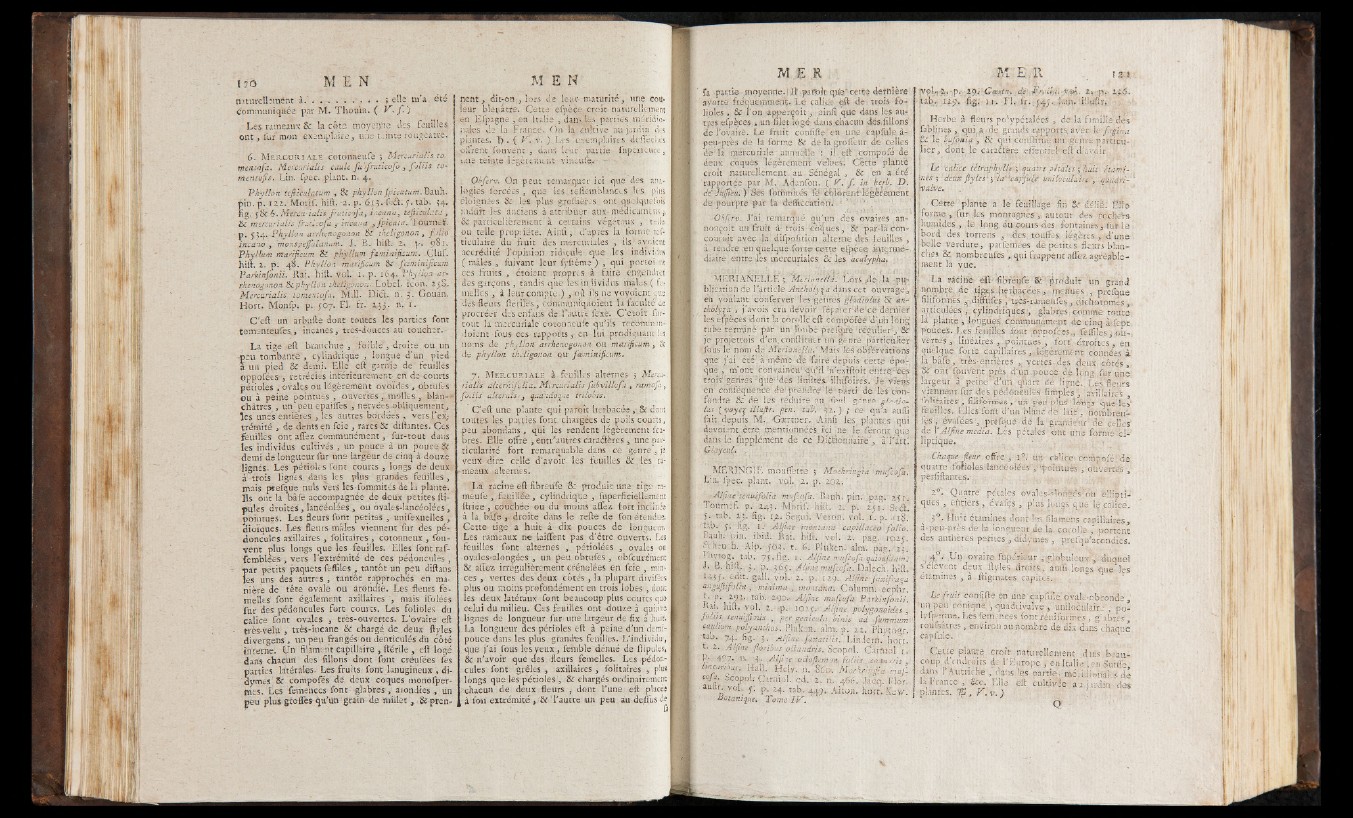 120 M E N
naturellement à. . . . . . . . . . . ; elle m'a été
communiquée par M. Thouin. ( V. s. )
Les rameaux & la côte moyenne des feuilles
ont, sur mon exemplaire, une teinte rougeâtre.
6. MERCURIALE cotonneuse ; Mercurialis to-
mentosa. Mercurialis caule suffruticoso, foliis to-
mentosis. Lin. spec. plant. n. 4.
Phyllon testiculatum, & phyllon spicatum. Bauh.
pin. p. 122. Moris. hist. 2. p. 615. sect. 5. tab. 34.
fig. 5 & 6. Mercurialis fruticosa, incana, testiculata,
& mercurialis fruticosa, incana, spicata. Tournef.
p. 534. Phyllon arrhenogonon & theligonon, folio
incano, monspessulanum. J. B. hist. 2. p. 981.
Phyllum marificum & phyllum fœminificum. Clus.
hist. 2. p. 48. Phyllon marificum & fœminificum
Parkinsonii. Rai, hist. vol. 1. p. 164. Phyllon ar-
rhenogonon & phyllon theligonon. Lobel. icon. 258.
Mercurialis tomentosa. Mill. Dict. n. 5. Gouan.
Hort. Monsp. p. 507. Fl. tr. 253. n. 1.
C'est un arbuste dont toutes les parties sont
tomenteuses, incanes, très-douces au toucher.
La tige est branchue, foible, droite ou un
peu tombante, cylindrique, longue d'un pied
à un pied & demi. Elle est garnie de feuilles
opposées, retrécies intérieurement en de courts
pétioles, ovales ou légèrement ovoïdes, obtuses
ou à peine pointues, ouvertes, molles, blan-
châtres, un peu épaisses, nervées obliquement,
les unes entières, les autres bordées, vers l'ex-
trémité, de dents en scie, rares & distantes. Ces
feuilles ont assez communément, sur-tout dans
les individus cultivés, un pouce à un pouce &
demi de longueur sur une largeur de cinq à douze
lignes. Les pétioles sont courts, longs de deux
à trois lignes dans les plus grandes feuilles,
mais presque nuls vers les sommités de la plante.
Ils ont la base accompagnée de deux petites sti-
pules droites, lancéolées, ou ovales-lancéolées,
pointues. Les fleurs sont petites, unisexuelles,
dioïques. Les fleurs mâles viennent sur des pé-
doncules axillaires, solitaires, cotonneux, sou-
vent plus longs que les feuilles. Elles sont ras-
semblées, vers l'extrémité de ces pédoncules,
par petits paquets sessiles, tantôt un peu distans
les uns des autres, tantôt rapprochés en ma-
nière de tête ovale ou arondie. Les fleurs fe-
melles sont également axillaires, mais situées
sur des pédoncules fort courts. Les folioles du
calice sont ovales, très-ouvertes. L'ovaire est
très-velu, très-incane & chargé de deux styles
divergens, un peu frangés ou denticulés du côté
interne. Un filament capillaire, stérile, est logé
dans chacun des sillons dont sont creusées ses
parties latérales. Les fruits sont lanugineux, di-
dymes & composés de deux coques monosper-
mes. Les semences sont glabres, arondies, un
peu plus grosses qu'un grain de millet, & pren-
M E N
nent, dit-on, lors de leur maturité, une cou-
leur bleuâtre. Cette espèce croît naturellement
en Espagne, en Italie, dans les parties méridio-
nales de la France. On la cultive au jardin des
plantes. ♄. ( V. v. ) Les exemplaires desséchés
offrent souvent, dans leur partie supérieure,
une teinte légèrement vineuse.
Observ. On peut remarquer ici que des ana-
logies forcées, que les ressemblances les plus
éloignées & les plus grossières ont quelquefois
induit les anciens à attribuer aux médicamens,
& particulièrement à certains végétaux, telle
ou telle propriété. Ainsi, d'après la forme tes-
ticulaire du fruit des mercuriales, ils avoient
accrédité l'opinion ridicule que les individus
( mâles, suivant leur système ), qui portoient
ces fruits, étoient propres à faire engendrer
des garçons, tandis que les individus mâles ( fe-
melles, à leur compte ), où ils ne voyoient que
des fleurs stériles, communiquoient la faculté de
procréer des enfans de l'autre sexe. C'étoit sur-
tout la mercuriale cotonneuse qu'ils recomman-
doient sous ces rapports, en lui prodiguant les
noms de phyllon arrhenogonon ou marificum, &
de phyllon theligonon ou fœminificum.
7. MERCURIALE à feuilles alternes ; Mercu-
rialis alternifolia. Mercurialis subvillosa, ramosa,
foliis alternis, quandoque trilobis.
C'est une plante qui paroît herbacée, & dont
toutes les parties sont chargées de poils courts,
peu abondans, qui les rendent légèrement sca-
bres. Elle offre, entr'autres caractères, une par-
ticularité fort remarquable dans ce genre, je
veux dire celle d'avoir les feuilles & les ra-
meaux alternes.
La racine est fibreuse & produit une tige ra-
meuse, feuillée, cylindrique, superficiellement
striée, couchée ou du moins assez fort inclinée
à la base, droite dans le reste de son étendue.
Cette tige a huit à dix pouces de longueur.
Les rameaux ne laissent pas d'être ouverts. Les
feuilles sont alternes, pétiolées, ovales ou
ovales-alongées, un peu obtuses, obscurément
& assez irrégulièrement crénelées en scie, min-
ces, vertes des deux côtés, la plupart divisées
plus ou moins profondément en trois lobes, dont
les deux latéraux sont beaucoup plus courts que
celui du milieu. Ces feuilles ont douze à quinze
lignes de longueur sur une largeur de six à huit.
La longueur des pétioles est à peine d'un demi-
pouce dans les plus grandes feuilles. L'individu,
que j'ai sous les yeux, semble dénué de stipules,
& n'avoir que des fleurs femelles. Les pédon-
cules sont grêles, axillaires, solitaires, plus
longs que les pétioles, & chargés ordinairement
chacun de deux fleurs, dont l'une est placée
à son extrémité, & l'autre un peu au dessus de
M E R
sa partie moyenne. Il paroît que cette dernière
avorte fréquemment. Le calice est de trois fo-
lioles, & l'on apperçoit, ainsi que dans les au-
tres espèces, un filet logé dans chacun des sillons
de l'ovaire. Le fruit consiste en une capsule à-
peu-près de la forme & de la grosseur de celles
de la mercuriale annuelle : il est composé de
deux coques légèrement velues. Cette plante
croît naturellement au Sénégal, & en a été
rapportée par M. Adanson. ( V. s. in herb. D.
de Jussieu. ) Ses sommités se colorent légèrement
de pourpre par la dessiccation.
Observ. J'ai remarqué qu'un des ovaires an-
nonçoit un fruit à trois coques, & par-là con-
couroit avec la disposition alterne des feuilles,
à rendre en quelque sorte cette espèce intermé-
diaire entre les mercuriales & les acalypha.
MERIANELLE ; Merianella. Lors de la pu-
blication de l'article Antholyza dans cet ouvrage,
en voulant conserver les genres gladiolus & an-
tholyza, j'avois cru devoir séparer de ce dernier
les espèces dont la corolle est composée d'un long
tube terminé par un limbe presque régulier, &
je projettois d'en constituer un genre particulier
sous le nom de Merianella. Mais les observations
que j'ai été à même de faire depuis cette épo-
que, m'ont convaincu qu'il n'existoit entre ces
trois genres que des limites illusoires. Je viens
en conséquence de prendre le parti de les con-
fondre & de les réduire au seul genre gladio-
lus ( voyez illustr. gen. tab. 32. ) ; ce qu'a aussi
fait depuis M. Gærtner. Ainsi les plantes qui
devoient être mentionnées ici ne le seront que
dans le supplément de ce Dictionnaire, à l'art.
Glayeul.
MERINGIE mousseuse ; Moehringia muscosa.
Lin. spec. plant. vol. 2. p. 202.
Alsine tenuifolia muscosa. Bauh. pin. pag. 251.
Tournef. p. 243. Moris. hist. 2. p. 251. sect.
5. tab. 23. fig. 12. Segui. Veron. vol. 1. p. 418.
tab. 5. fig. 1. Alsine montana capillaceo folio.
Bauh. pin. ibid. Rai. hist. vol. 2. pag. 1025.
Pluknet. Alp. 702. t. 6. Pluken. alm. pag. 23.
Phytog. tab. 75. fig. 1. Alsine muscosa quibusdam.
J. B. hist. 3. p. 365. Alsine muscosa. Dalech. hist.
1233. edit. gall. vol. 2. p. 129. Alsine saxifraga
angustifolia, minima, montana. Column. ecphr.
1. p. 292. tab. 290. Alsine muscosa Parkinsonii.
Rai. hist. vol. 2. p. 1025. Alsine polygonoides,
foliis tenuissimis, per genicula binis ad summum
caulium polyanthos. Pluken. alm. p. 22. Phytogr.
tab. 74. fig. 2. Alsine semivilis. Lindern. hort.
t. 2. Alsine floribus octandris. Scopol. Carniol 1.
p. 497. n. 4. Alsine
Hall. Helv. n. 860. Moehringia mus-
cosa. Scopol. Carniol. ed. 2. n. 460. Jacq. Flor.
austr. vol. 5. p. 24. tab. 449. Aiton. hort. Kew.
Botanique. Tome IV.
M E R 121
vol. 2. p. 29. vol. 2. p. 226.
tab. 129. fig. 11. Fl. fr. 545. Lam. illustr.
Herbe à fleurs polypétalées, de la famille des
sablines, qui a de grands rapports avec le sagina
& le bufonia, & qui constitue un genre particu-
lier, dont le caractère essentiel est d'avoir
Le calice tétraphylle ; quatre pétales ; huit étami-
nes ; deux styles ; la capsule uniloculaire, quadri-
valve.
Cette plante a le feuillage fin & délié. Elle
forme, sur les montagnes, autour des rochers
humides, le long du cours des fontaines, sur le
bord des torrens, des touffes légères, d'une
belle verdure, parsemées de petites fleurs blan-
ches & nombreuses, qui frappent assez agréable-
ment la vue.
La racine est fibreuse & produit un grand
nombre de tiges herbacées, menues, presque
filiformes, diffuses, très-rameuses, enchaînées,
articulées, cylindriques, glabres comme toute
la plante, longues communément de cinq à sept
pouces. Les feuilles sont opposées, sessiles, ou-
vertes, linéaires, pointues, fort étroites, en
quelque sorte capillaires, légèrement connées à
la base, très-entières, vertes des deux côtés,
& ont souvent près d'un pouce de long sur une
largeur à peine d'un quart de ligne. Les fleurs
viennent sur des pédoncules simples, axillaires,
solitaires, filiformes, un peu plus longs que les
feuilles. Elles sont d'un blanc de lait, nombreu-
ses, évasées, presque de la grandeur de celles
de l'Alsine media. Les pétales ont une forme el-
liptique.
Chaque fleur offre, 1°. un calice composé de
quatre folioles lancéolées, pointues, ouvertes,
persistantes.
2°. Quatre pétales ovales-alongés ou ellipti-
ques, entiers, évasés, plus longs que le calice.
3°. Huit étamines dont les filamens capillaires,
à-peu-près de la longueur de la corolle, portent
des anthères petites, didymes, presqu'arrondies.
4°. Un ovaire supérieur, globuleux, duquel
s'élèvent deux styles droits, aussi longs que les
étamines, à stigmates capités.
Le fruit consiste en une capsule ovale-obronde,
un peu conique, quadrivalve, uniloculaire, po-
lysperme. Les semences sont réniformes, glabres,
roussâtres, environ au nombre de six dans chaque
capsule.
Cette plante croît naturellement dans beau-
coup d'endroits de l'Europe ; en Italie, en Suisse,
dans l'Autriche, dans les parties méridionales de
la France, &c. Elle est cultivée au jardin des
plantes. ♃. ( V. v. )
Q